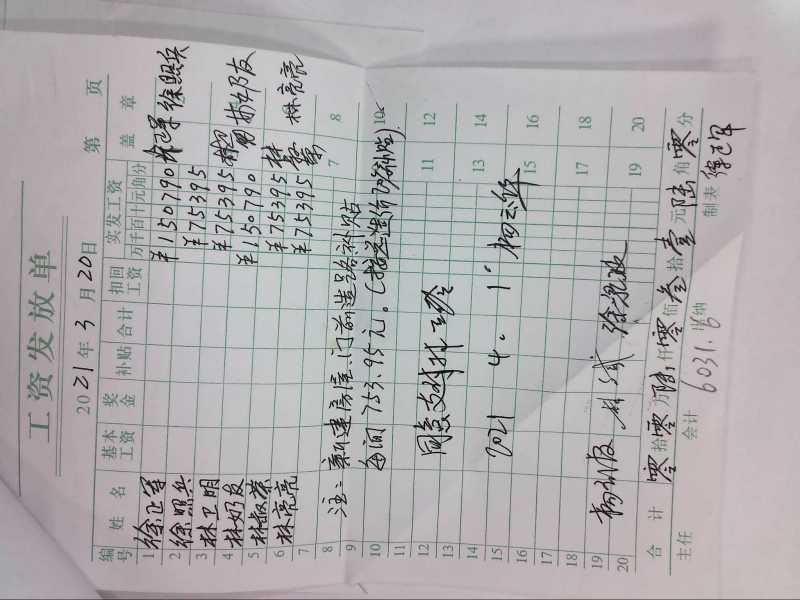 工资发放单
2021年3月20日
第 页
编号 姓名 基本工资 奖金 补贴 合计 扣回工资 实发工资 盖章
万千百十元角分
1 徐正军 ¥150790
2 徐照兵 ¥75395 徐照兵
3 林卫明 ¥75395
4 林好友 ¥150790 林好友
5 林叔荣 ¥75395
6 林亮亮 ¥75395 林亮亮
7 7 8
8 注：新建房屋门前道路补贴
9 每间753.95元。
10 9 10
11
12 同意支付 11 12
13
14 13 14
15 2021 4. 1
16 15 16
17
18 17 18
19
20 19 20
合计 零拾零万陆仟零佰叁拾壹元陆角零分
主任 会计 出纳 制表 徐正军
6031.6